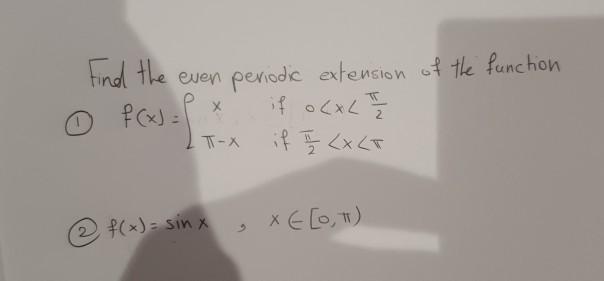 Find the even periodic extension of the function
① f(x) = { x if 0<x<π/2
π-x if π/2 <x<π
② f(x) = sin x , x ∈ [0, π)